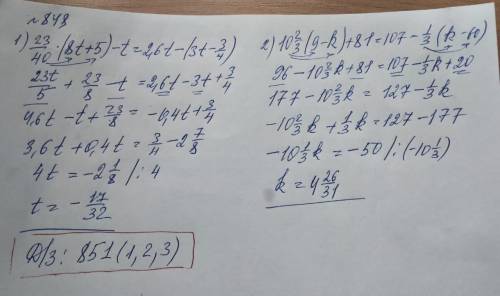 №848
1) 23/40 · (8t+5) - t = 2,6t - (3t - 3/4)
23t/5 + 23/8 - t = 2,6t - 3t + 3/4
4,6t - t + 23/8 = -0,4t + 3/4
3,6t + 0,4t = 3/4 - 2 7/8
4t = -2 1/8 /: 4
t = - 17/32
Д/з: 851(1,2,3)
2) 10 2/3 (9-k) + 81 = 107 - 1/3 (k-60)
96 - 10 2/3 k + 81 = 107 - 1/3 k + 20
177 - 10 2/3 k = 127 - 1/3 k
-10 2/3 k + 1/3 k = 127 - 177
-10 1/3 k = -50 /: (-10 1/3)
k = 4 26/31